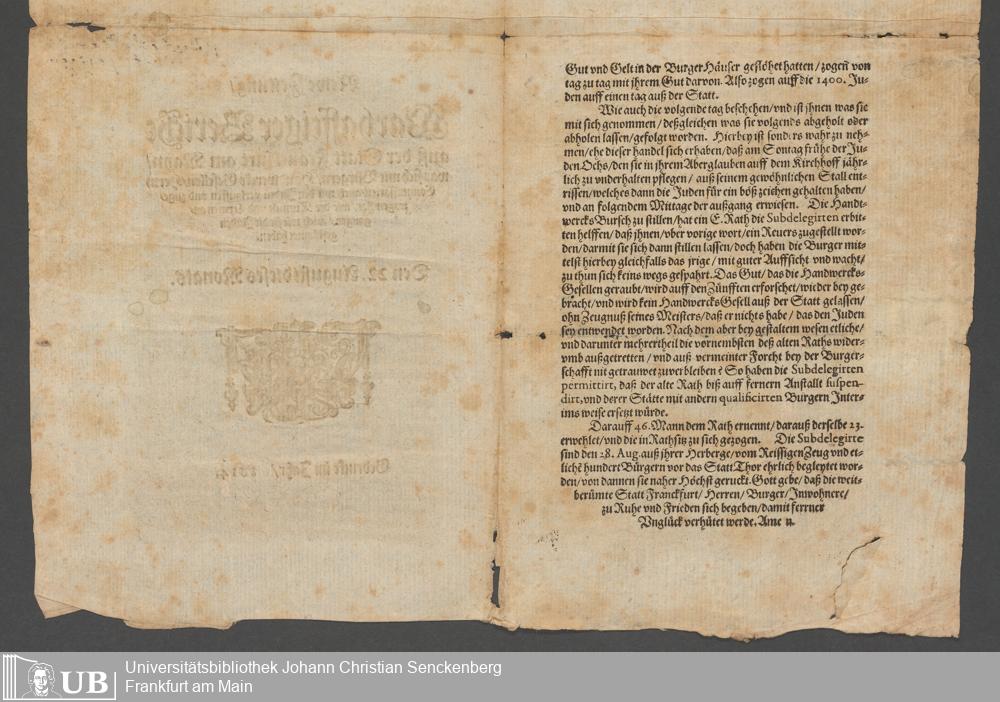 Gut vnd Gelt in der Burger Häuser geflöhet hatten / zogen von
tag zu tag mit jhrem Gut darvon. Also zogen auff die 1400. Ju-
den auff einen tag auß der Statt.
Wie auch die volgende tag beschehen / vnd ist jhnen was sie
mit sich genommen / deßgleichen was sie volgends abgeholt oder
abholen lassen / gefolgt worden. Hierbey ist sonders wahr zu neh-
men / ehe dieser handel sich erhaben / daß am Sontag frühe der Ju-
den Ochs / den sie in ihrem Aberglauben auff dem Kirchhoff jähr-
lich zu vnderhalten pflegen / auß seinem gewöhnlichen Stall ent-
rissen / welches dann die Juden für ein böß zeichen gehalten haben /
vnd an folgendem Mittage der außgang erwiesen. Die Handt-
wercks Bursch zu stillen / hat ein E. Rath die Subdelegirten erbit-
ten helffen / daß jhnen / vber vorige wort / ein Reuers zugestellt wor-
den / darmit sie sich dann stillen lassen / doch haben die Burger mit-
telst hierbey gleichfalls das jrige / mit guter Auffsicht vnd wacht /
zu thun sich keins wegs gespahrt. Das Gut / das die Handwercks-
Gesellen geraubt / wird auff den Zünfften erforschet / wieder bey ge-
bracht / vnd wird kein Handwercks Gesell auß der Statt gelassen /
ohn Zeugnuß seines Meisters / daß er nichts habe / das den Juden
sey entwendet worden. Nach dem aber bey gestaltem wesen etliche /
vnd darunter mehrertheil die vornembsten deß alten Raths wider-
vmb außgetretten / vnd auß vermeinter Forcht bey der Burger-
schafft nit getrauwet zuverbleiben: So haben die Subdelegirten
permittirt, daß der alte Rath biß auff fernern Anstallt suspen-
dirt, vnd derer Stätte mit andern qualificirten Burgern Inter-
ims weise ersetzt würde.
Darauff 46. Mann dem Rath ernennt / darauß derselbe 23.
erwehlet / vnd die in Rathsitz zu sich gezogen. Die Subdelegirte
sind den 28. Aug. auß jhrer Herberge / vom Reissigen Zeug vnd et-
lichē hundert Bürgern vor das Statt Thor ehrlich begleytet wor-
den / von dannen sie naher Höchst geruckt. Gott gebe / daß die weit-
berümte Statt Franckfurt / Herren / Burger / Inwohnere /
zu Ruhe vnd Frieden sich begeben / damit ferrner
Vnglück verhütet werde. Amen.
UB
Universitätsbibliothek Johann Christian Senckenberg
Frankfurt am Main